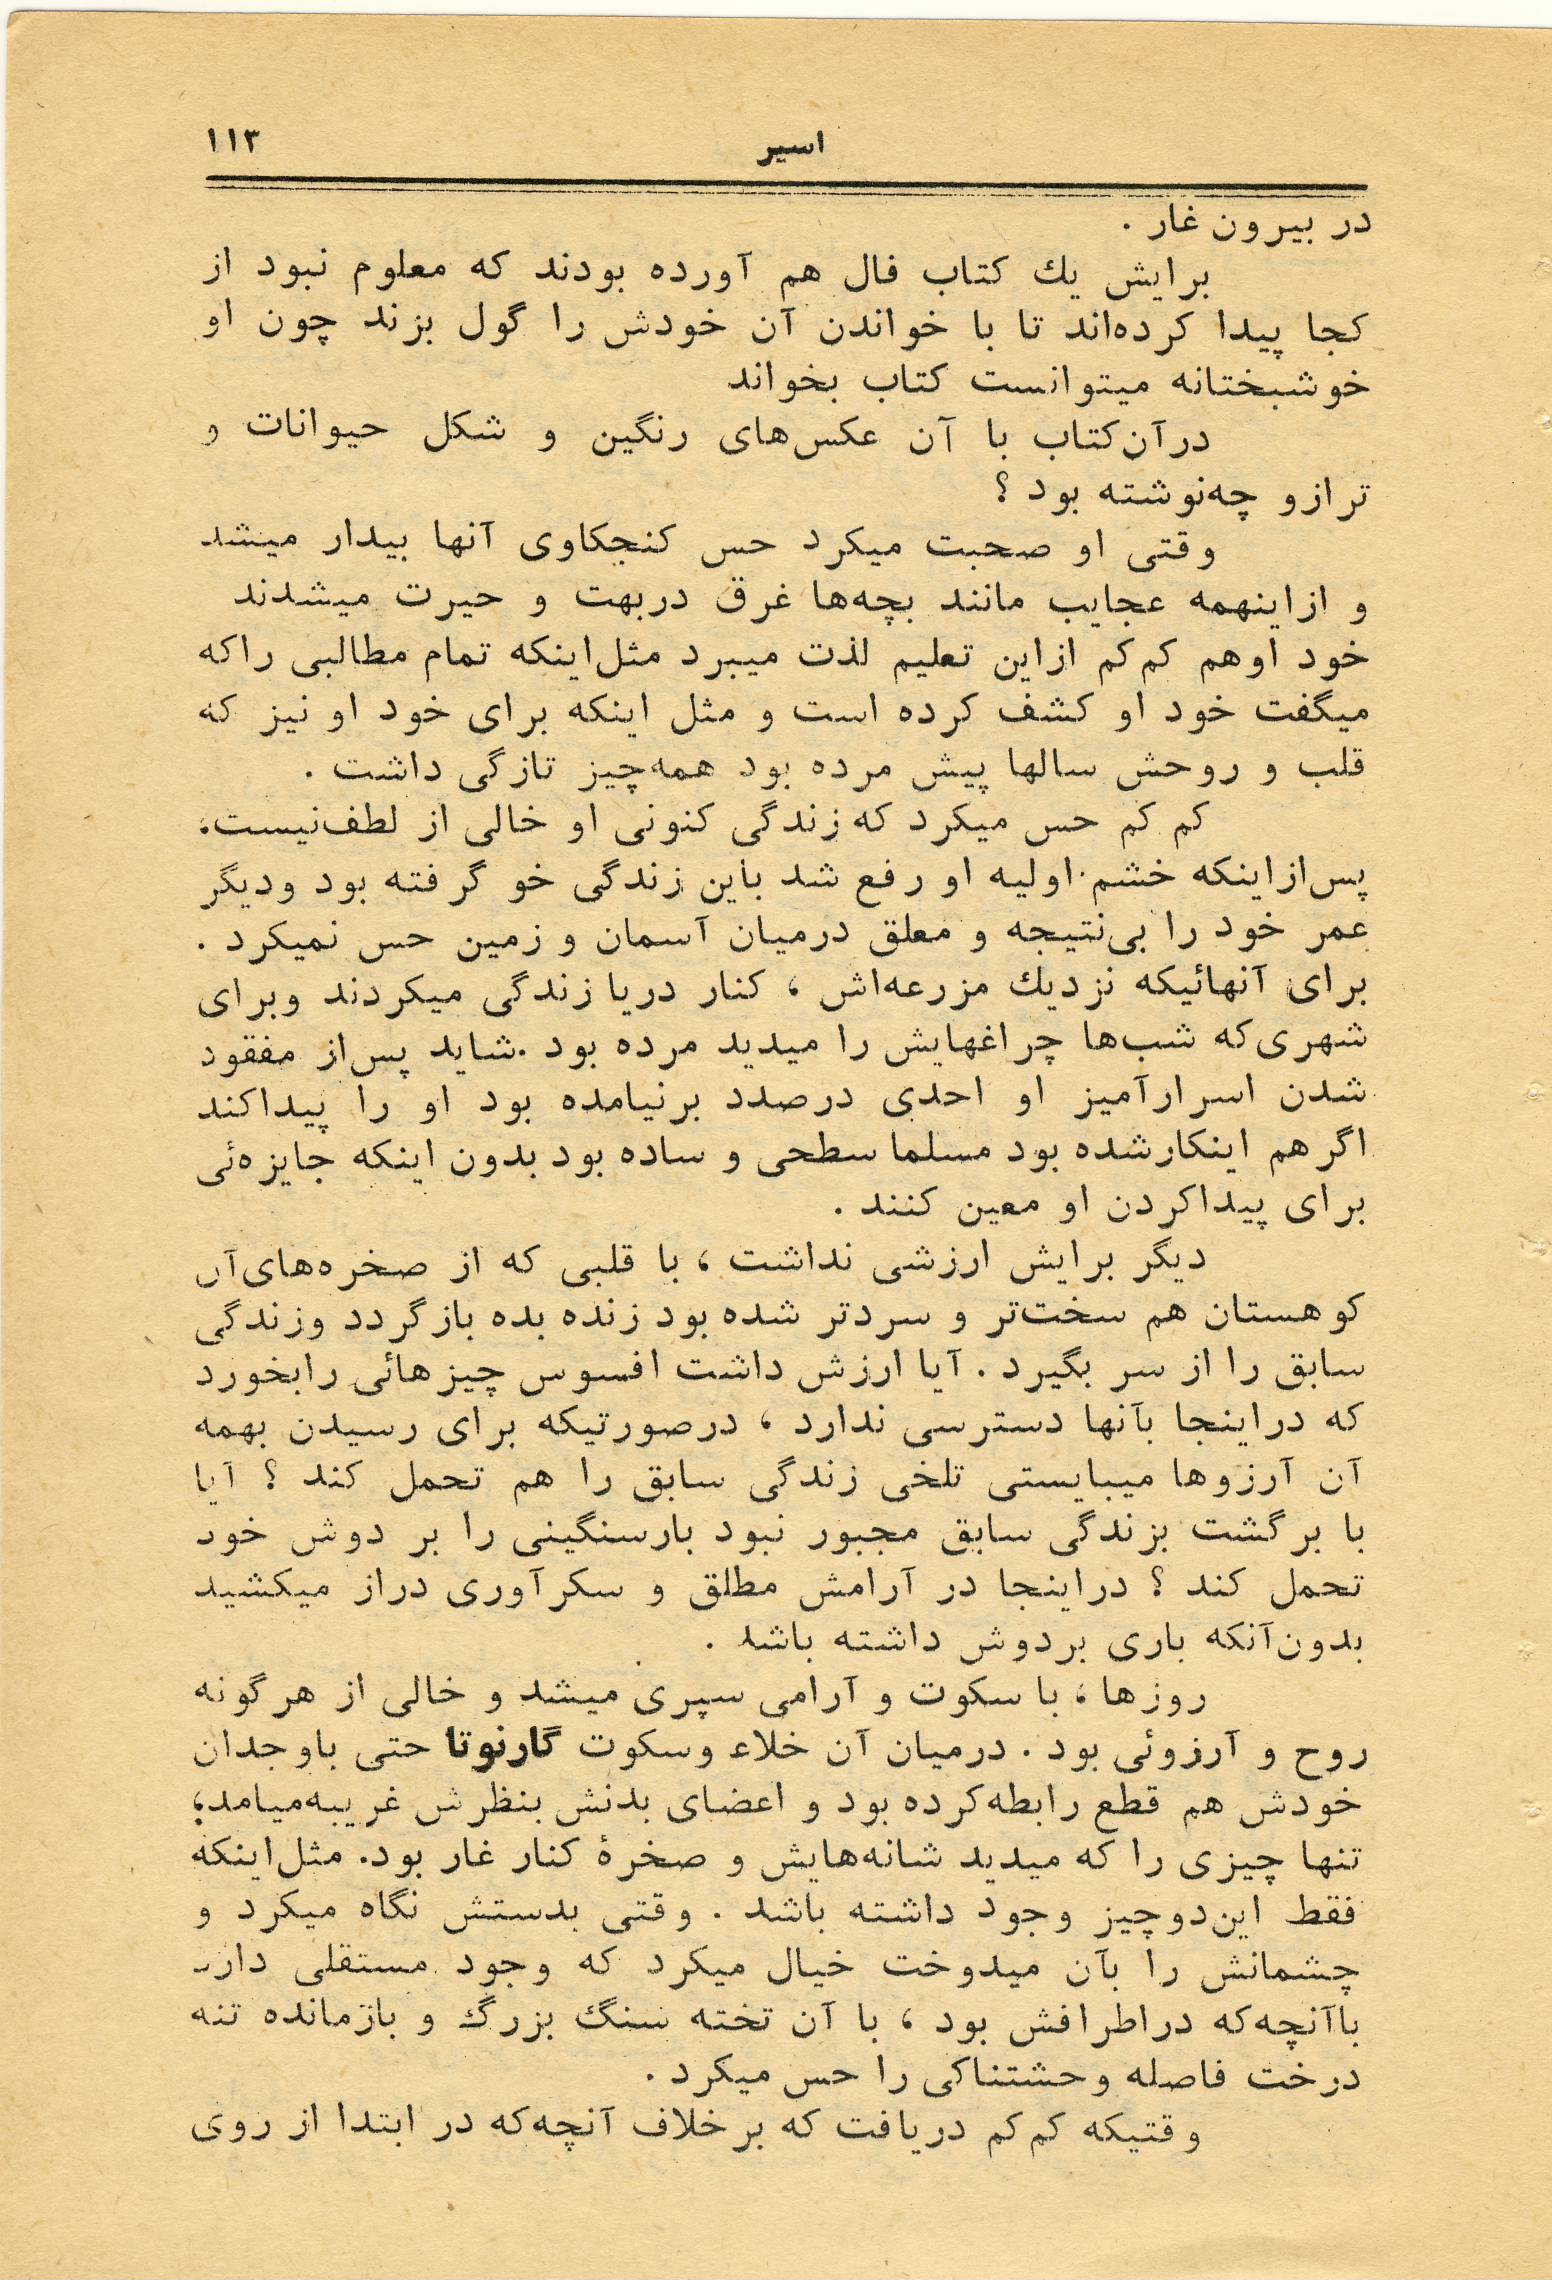 اسیر
۱۱۳
در بیرون غار .
برایش یك کتاب فال هم آورده بودند که معلوم نبود از
کجا پیدا کرده‌اند تا با خواندن آن خودش را گول بزند چون او
خوشبختانه میتوانست کتاب بخواند
درآن‌کتاب با آن عکس‌های رنگین و شکل حیوانات و
ترازو چه‌نوشته بود ؟
وقتی او صحبت میکرد حس کنجکاوی آنها بیدار میشد
و ازاینهمه عجایب مانند بچه‌ها غرق دربهت و حیرت میشدند
خود اوهم کم‌کم ازاین تعلیم لذت میبرد مثل‌اینکه تمام مطالبی راکه
میگفت خود او کشف کرده است و مثل اینکه برای خود او نیز که
قلب و روحش سالها پیش مرده بود همه‌چیز تازگی داشت .
کم کم حس میکرد که زندگی کنونی او خالی از لطف‌نیست،
پس‌ازاینکه خشم اولیه او رفع شد باین زندگی خو گرفته بود ودیگر
عمر خود را بی‌نتیجه و معلق درمیان آسمان و زمین حس نمیکرد .
برای آنهائیکه نزدیك مزرعه‌اش ، کنار دریا زندگی میکردند وبرای
شهری‌که شب‌ها چراغهایش را میدید مرده بود .شاید پس‌از مفقود
شدن اسرارآمیز او احدی درصدد برنیامده بود او را پیداکند
اگرهم اینکارشده بود مسلما سطحی و ساده بود بدون اینکه جایزه‌ئی
برای پیداکردن او معین کنند .
دیگر برایش ارزشی نداشت ، با قلبی که از صخره‌های‌آن
کوهستان هم سخت‌تر و سردتر شده بود زنده بده بازگردد وزندگی
سابق را از سر بگیرد . آیا ارزش داشت افسوس چیزهائی رابخورد
که دراینجا بآنها دسترسی ندارد ، درصورتیکه برای رسیدن بهمه
آن آرزوها میبایستی تلخی زندگی سابق را هم تحمل کند ؟ آیا
با برگشت بزندگی سابق مجبور نبود بارسنگینی را بر دوش خود
تحمل کند ؟ دراینجا در آرامش مطلق و سکرآوری دراز میکشید
بدون‌آنکه باری بردوش داشته باشد .
روزها ، با سکوت و آرامی سپری میشد و خالی از هرگونه
روح و آرزوئی بود . درمیان آن خلاء وسکوت گارنوتا حتی باوجدان
خودش هم قطع رابطه‌کرده بود و اعضای بدنش بنظرش غریبه‌میامد،
تنها چیزی را که میدید شانه‌هایش و صخرۀ کنار غار بود. مثل‌اینکه
فقط این‌دوچیز وجود داشته باشد . وقتی بدستش نگاه میکرد و
چشمانش را بآن میدوخت خیال میکرد که وجود مستقلی دارد
باآنچه‌که دراطرافش بود ، با آن تخته سنگ بزرگ و بازمانده تنه
درخت فاصله وحشتناکی را حس میکرد .
وقتیکه کم‌کم دریافت که برخلاف آنچه‌که در ابتدا از روی